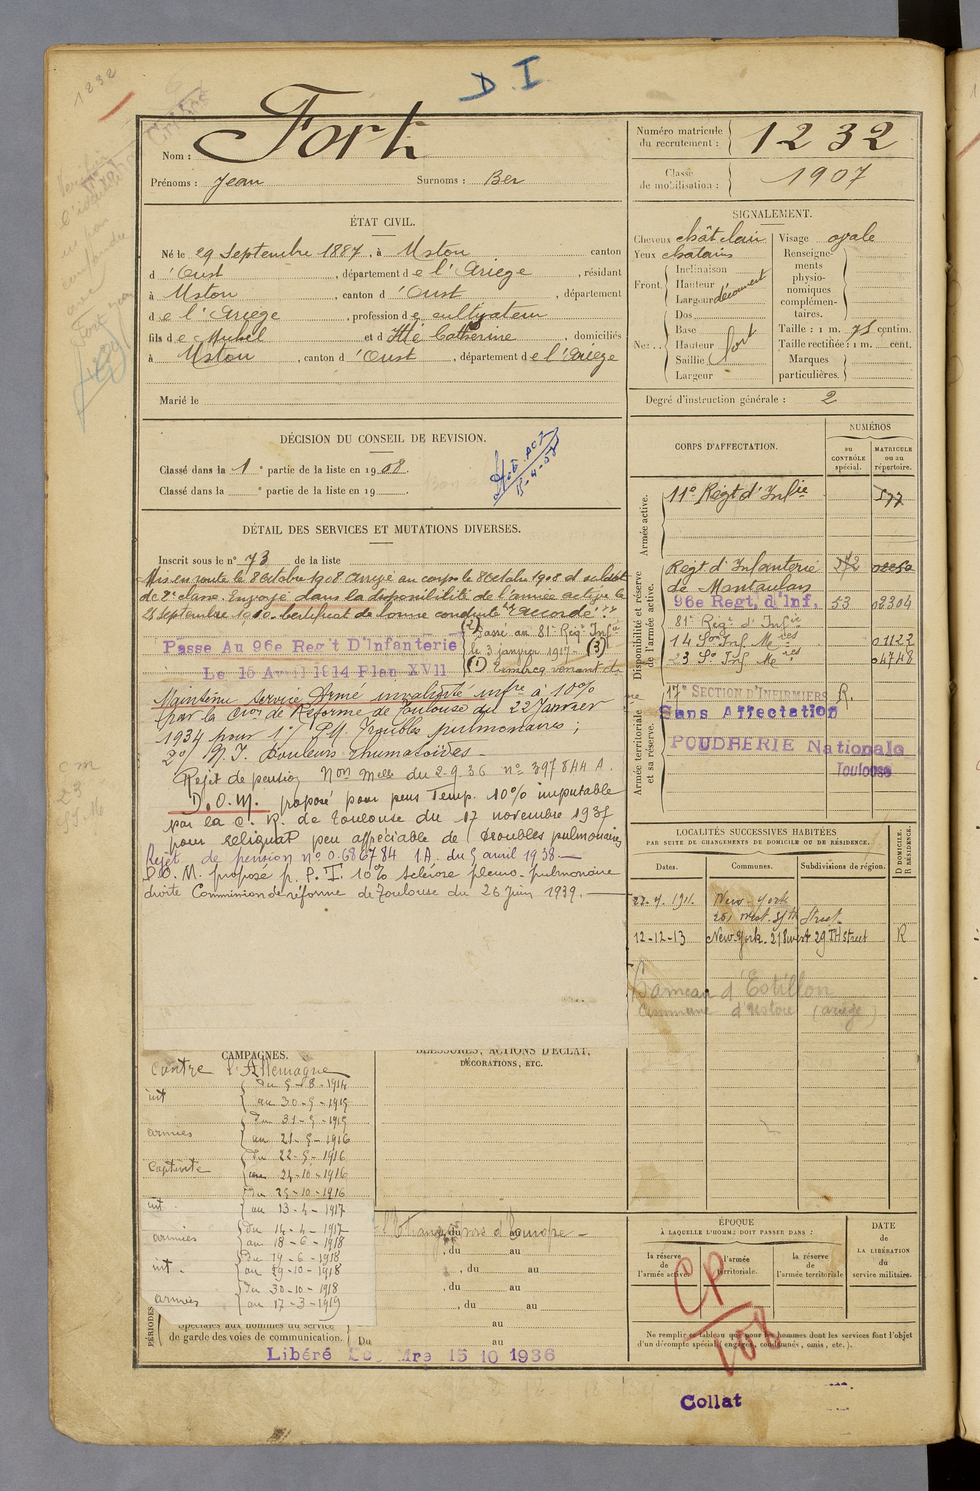 1232
D.I
Nom : Fort
Prénoms : Jean Surnoms : Ber
Numéro matricule du recrutement : 1232
Classe de mobilisation : 1907
ÉTAT CIVIL.
Né le 29 Septembre 1887, à Ustou canton
d'Oust, département de l'Ariège, résidant
à Ustou, canton d'Oust, département
de l'Ariège, profession de cultivateur
fils de Michel et d Catherine, domiciliés
à Ustou, canton d'Oust, département de l'Ariège
Marié le
SIGNALEMENT.
Cheveux chât clair Visage ovale
Yeux chatains
Front. Inclinaison
Hauteur
Largeur découvert
Nez.. Dos
Base
Hauteur fort
Saillie
Largeur
Renseignements physionomiques complémentaires.
Taille : 1 m. 75 centim.
Taille rectifiée : 1 m. cent.
Marques particulières.
Degré d'instruction générale : 2
DÉCISION DU CONSEIL DE REVISION.
Classé dans la 1e partie de la liste en 1908.
Classé dans la e partie de la liste en 19
DÉTAIL DES SERVICES ET MUTATIONS DIVERSES.
Inscrit sous le n° 73 de la liste
Mis en route le 8 Octobre 1908 arrivé au corps le 8 Octobre 1908 et soldat
de 2e classe. Envoyé dans la disponibilité de l'armée active le
25 Septembre 1910. Certificat de bonne conduite "accordé".
(2) Passé au 81e Régt Infie
Passe Au 96e Regt D'Infanterie
le 3 janvier 1917. (3)
Le 15 Avril 1914 Plan XVII
Maintenu Service Armé invalidité infre à 10%
par la Cion de Réforme de Toulouse du 22 Janvier
1934 pour 1°/ P.G. Troubles pulmonaires ;
2°/ N.I. Douleurs rhumatoïdes.
Rejet de pension Non Mlle du 2.9.36 n° 397844 A.
D.O.M. proposé pour pens Temp. 10% imputable
par la C.R. de Toulouse du 17 novembre 1937
pour reliquat peu appréciable de troubles pulmonaires
Rejet de pension n° 0.686784 1A. du 5 avril 1938
D.O.M. proposé p. P.T. 10% Sclérose pleuro-pulmonaire
droite Commission de réforme de Toulouse du 26 Juin 1939.
CORPS D'AFFECTATION.
NUMÉROS
au CONTRÔLE spécial.
MATRICULE ou au répertoire.
Armée active.
11e Régt d'Infie 577
Disponibilité et réserve de l'armée active.
Régt d'Infanterie
de Montauban
96e Regt, d'Inf. 53 02304
81e Régt d'Infie
01122
04748
Armée territoriale et sa réserve.
17e SECTION D'INFIRMIERS R.
Sans Affectation
POUDRERIE Nationale
Toulouse
LOCALITÉS SUCCESSIVES HABITÉES
PAR SUITE DE CHANGEMENTS DE DOMICILE OU DE RÉSIDENCE.
Dates. Communes. Subdivisions de région. D DOMICILE. R RÉSIDENCE.
New-York
Street
12-12-13 New-York. 218 west 29TH street R
Hameau d'Estillon
Commune d'Ustou (ariège)
CAMPAGNES.
Contre l'Allemagne
int du 5-8-1914
au 30-5-1915
armées du 31-5-1915
au 21-5-1916
Captivité du 22-5-1916
au 24-10-1916
int. du 25-10-1916
au 13-4-1917
armées du 14-4-1917
au 18-6-1918
int. du 19-6-1918
au 29-10-1918
armées du 30-10-1918
au 17-3-1919
BLESSURES, ACTIONS D'ÉCLAT,
DÉCORATIONS, ETC.
, du au
, du au
, du au
, du au
au
PÉRIODES
Spéciales aux hommes du service
de garde des voies de communication. Du au
Libéré 15 10 1936
ÉPOQUE
À LAQUELLE L'HOMME DOIT PASSER DANS :
la réserve de l'armée active
l'armée territoriale.
la réserve de l'armée territoriale
DATE de LA LIBÉRATION du service militaire.
CP
108
Ne remplir ce tableau que pour les hommes dont les services font l'objet
d'un décompte spécial (engagés, condamnés, omis, etc.).
Collat